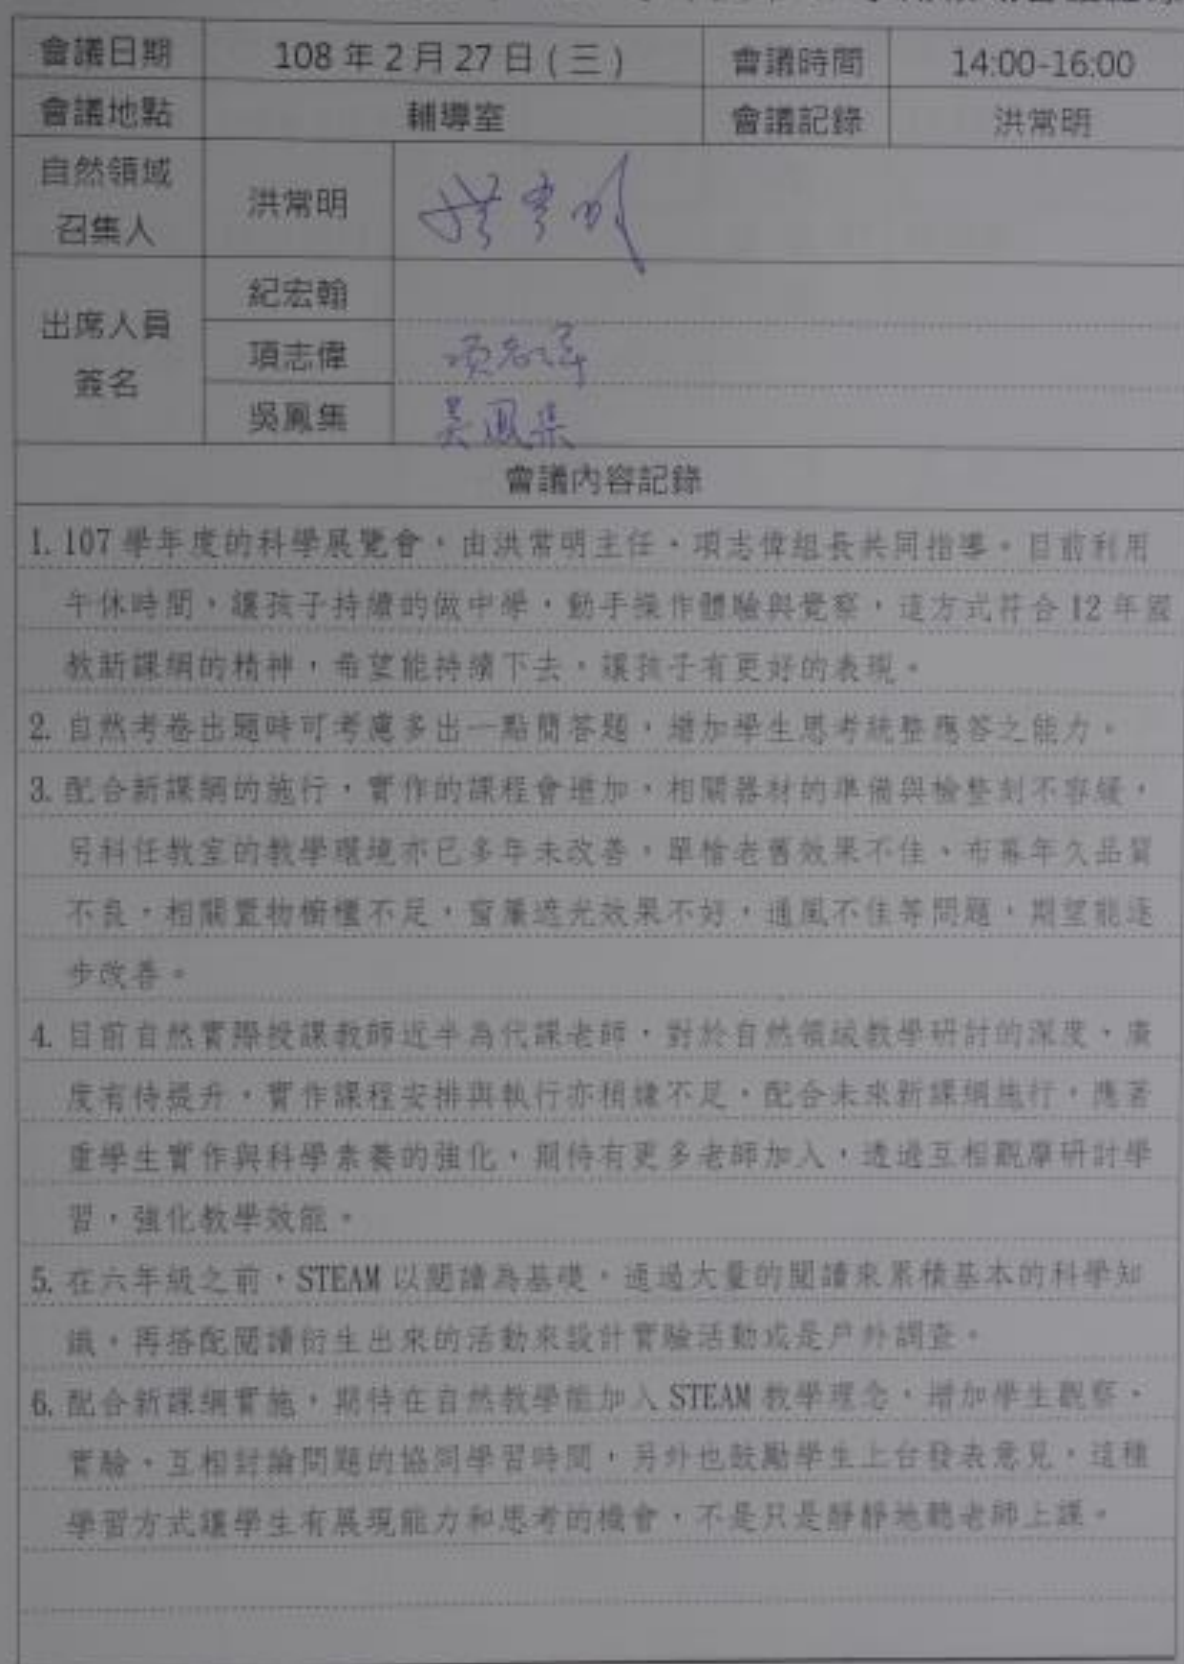 會議日期 108 年 2 月 27 日 ( 三 ) 會議時間 14:00-16:00
會議地點 輔導室 會議記錄 洪常明
自然領域
召集人 洪常明 洪常明
出席人員
簽名
紀宏翰
項志偉 項志偉
吳鳳集 吳鳳集
會議內容記錄
1. 107 學年度的科學展覽會，由洪常明主任、項志偉組長共同指導。目前利用
午休時間，讓孩子持續的做中學，動手操作體驗與覺察，這方式符合 12 年國
教新課綱的精神，希望能持續下去，讓孩子有更好的表現。
2. 自然考卷出題時可考慮多出一點簡答題，增加學生思考統整應答之能力。
3. 配合新課綱的施行，實作的課程會增加，相關器材的準備與檢整刻不容緩，
另科任教室的教學環境亦已多年未改善，單槍老舊效果不佳、布幕年久品質
不良，相關置物櫥櫃不足，窗簾遮光效果不好，通風不佳等問題，期望能逐
步改善。
4. 目前自然實際授課教師近半為代課老師，對於自然領域教學研討的深度、廣
度有待提升，實作課程安排與執行亦稍嫌不足，配合未來新課綱施行，應著
重學生實作與科學素養的強化，期待有更多老師加入，透過互相觀摩研討學
習，強化教學效能。
5. 在六年級之前，STEAM 以閱讀為基礎，通過大量的閱讀來累積基本的科學知
識，再搭配閱讀衍生出來的活動來設計實驗活動或是戶外調查。
6. 配合新課綱實施，期待在自然教學能加入 STEAM 教學理念，增加學生觀察、
實驗、互相討論問題的協同學習時間，另外也鼓勵學生上台發表意見，這種
學習方式讓學生有展現能力和思考的機會，不是只是靜靜地聽老師上課。